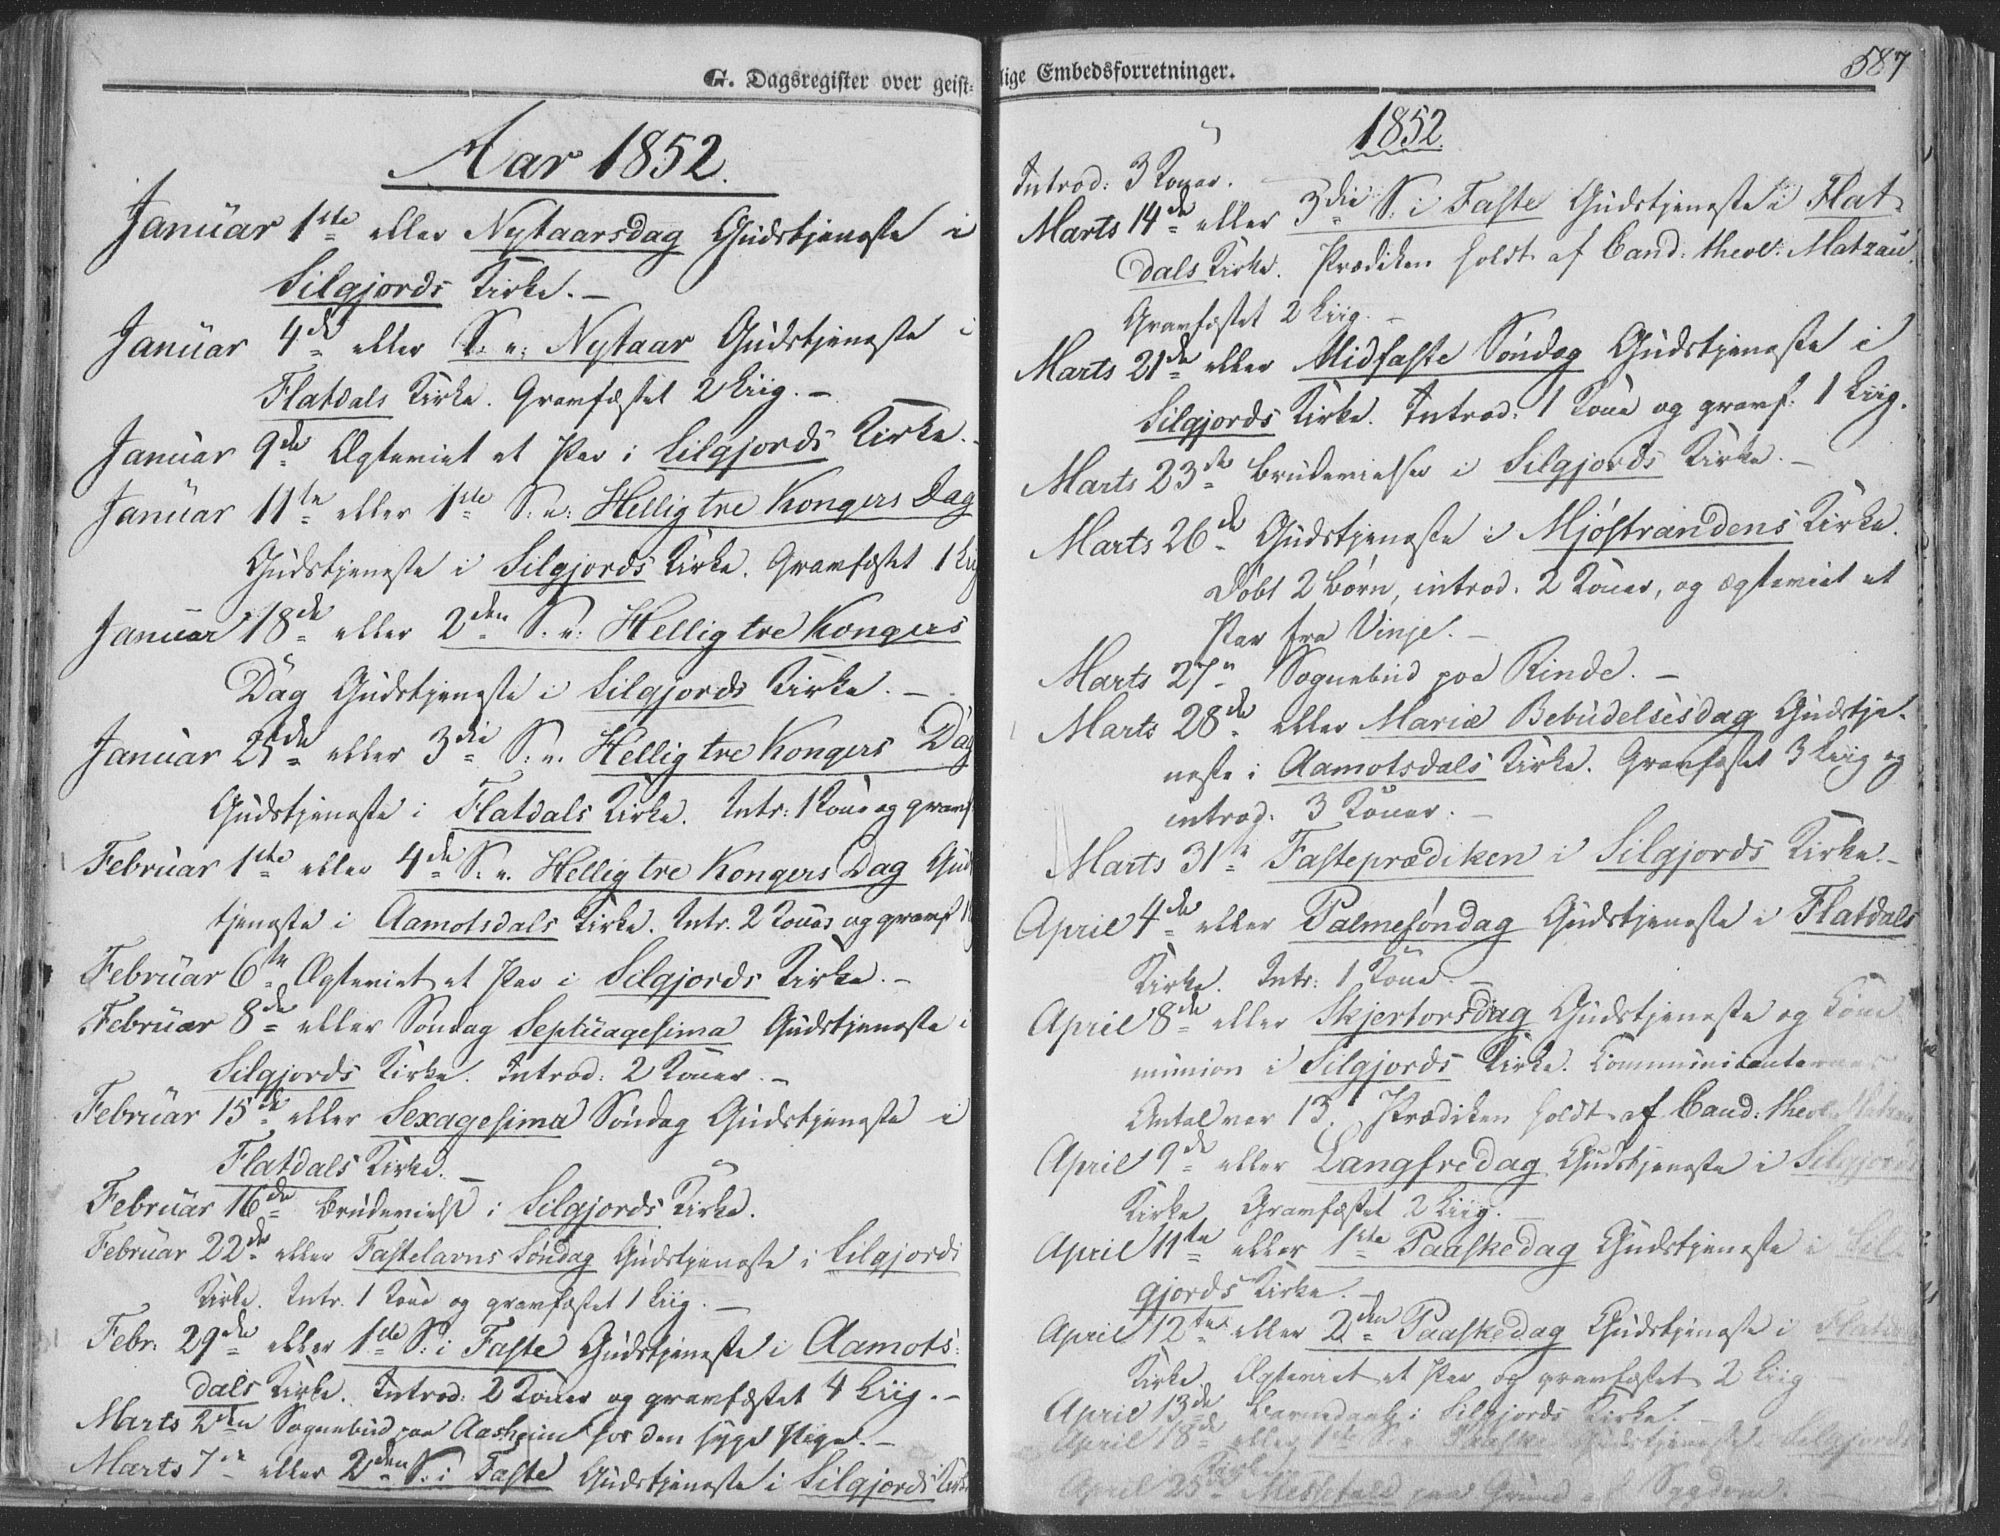 G. Dagsregister over geist-
Aar 1852.
Januar 1ste eller Nytaarsdag Gudstjeneste i
Silgjords Kirke. –
Januar 4de eller S. e: Nytaar Gudstjeneste i
Flatdals Kirke. Gravfæstet 2 Liig. –
Januar 9de Ægteviet et Par i Silgjords Kirke. –
Januar 11te eller 1ste S: e: Hellig tre Kongers Dag
Gudstjeneste i Silgjords Kirke. Gravfæstet 1 Liig
Januar 18de eller 2den S. e: Hellig tre Kongers
Dag Gudstjeneste i Silgjords Kirke. –
Januar 25de eller 3die S: e. Hellig tre Kongers Dag
Gudstjeneste i Flatdals Kirke. Intr: 1 Kone og gravf
Februar 1ste eller 4de S. e. Hellig tre Kongers Dag Guds
tjeneste i Aamotsdals Kirke. Intr. 2 Koner og gravf
Februar 6te Ægteviet et Par i Silgjords Kirke. –
Februar 8de eller Søndag Septuagesima Gudstjeneste i
Silgjords Kirke. Introd: 2 Koner. –
Februar 15de eller Sexagesima Søndag Gudstjeneste i
Flatdals Kirke. –
Februar 16de Brudevielse i Silgjords Kirke.
Februar 22de eller Fastelavns Søndag Gudstjeneste i Silgjords
Kirke. Intr. 1 Kone og gravfæstet 1 Liig. –
Febr. 29de eller 1ste S: i Faste Gudstjeneste i Aamots:
dals Kirke. Introd: 2 Koner og gravfæstet 4 Liig. –
Marts 2den Sognebud paa Aasheim hos den syge Pige. –
Marts 7de eller 2den S. i Faste Gudstjeneste i Silgjords Kirke
lige Embedsforretninger.
587
1852.
Introd: 3 Koner.
Marts 14de eller 3die S: i Faste Gudstjeneste i Flat-
dals Kirke. Prædiken holdt af Cand: theol: Matzau.
Gravfæstet 2 Liig. –
Marts 21de eller Midfaste Søndag Gudstjeneste i
Silgjords Kirke. Introd: 1 Kone og gravf: 1 Liig.
Marts 23de Brudevielse i Silgjords Kirke. –
Marts 26de Gudstjeneste i Mjøstrandens Kirke.
Døbt 2 Børn, introd. 2 Koner, og ægteviet et
Par fra Vinje. –
Marts 27n Sognebud paa Rinde. –
Marts 28de eller Mariæ Bebudelsesdag Gudstje-
neste i Aamotsdals Kirke. Gravfæstet 3 Liig og
introd. 3 Koner. –
Marts 31te Fasteprædiken i Silgjords Kirke. –
April 4de eller Palmesøndag Gudstjeneste i Flatdals
Kirke. Intr: 1 Kone. –
April 8de eller Skjertorsdag Gudstjeneste og Com
munion i Silgjords Kirke. Communicanternes
Antal var 13. Prædiken holdt af Cand: theol: Matzau
April 9de eller Langfredag Gudstjeneste i Silgjords
Kirke. Gravfæstet 2 Liig. –
April 11te eller 1ste Paaskedag Gudstjeneste i Sil-
gjords Kirke. –
April 12te eller 2den Paaskedag Gudstjeneste i Flatdals
Kirke. Ægteviet et Par og gravfæstet 2 Liig –
April 13de Barnedaab i Silgjords Kirke.
April 18de eller 1ste S. e. Paaske Gudstjeneste i Silgjords
Kirke.
April 25de Messefald paa Grund af Sygdom. –